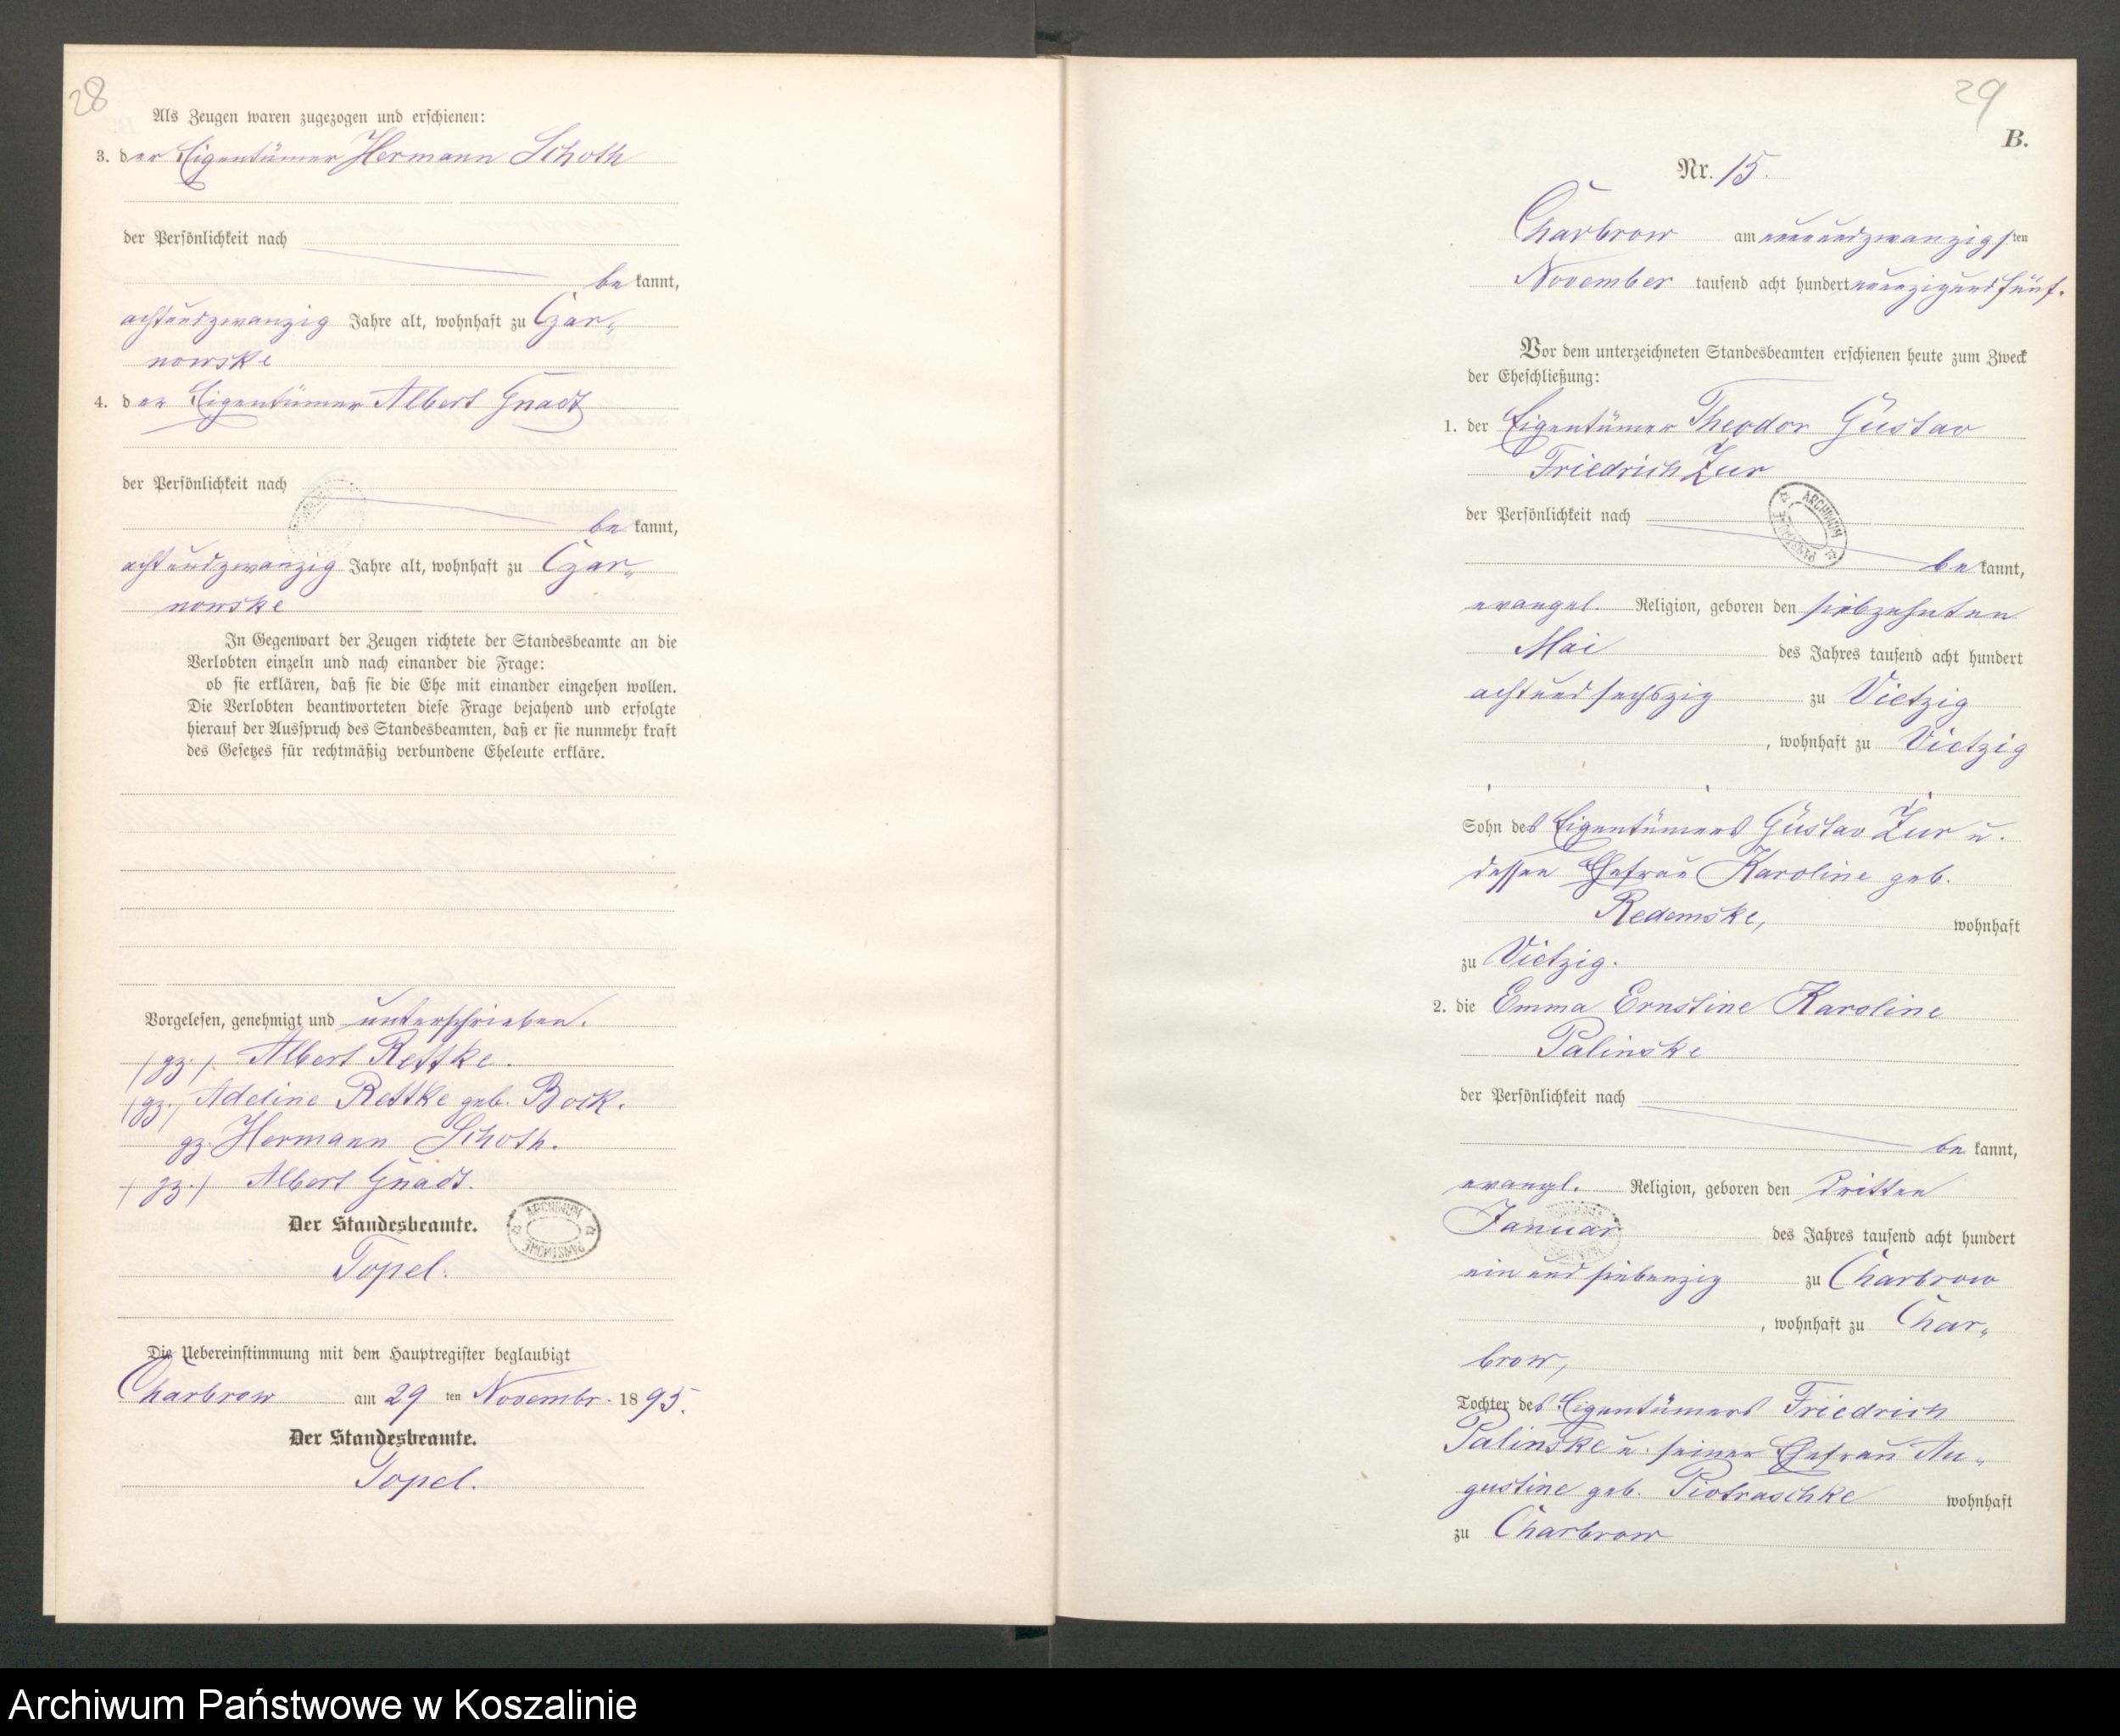 28
Als Zeugen waren zugezogen und erschienen:
3. der Eigentümer Hermann Schoth
der Persönlichkeit nach
be kannt,
achtundzwanzig Jahre alt, wohnhaft zu Czar„
nowske
4. der Eigentümer Albert Gnadt
der Persönlichkeit nach
be kannt,
achtundzwanzig Jahre alt, wohnhaft zu Czar„
nowske
In Gegenwart der Zeugen richtete der Standesbeamte an die
Verlobten einzeln und nach einander die Frage:
ob sie erklären, daß sie die Ehe mit einander eingehen wollen.
Die Verlobten beantworteten diese Frage bejahend und erfolgte
hierauf der Ausspruch des Standesbeamten, daß er sie nunmehr kraft
des Gesetzes für rechtmäßig verbundene Eheleute erkläre.
Vorgelesen, genehmigt und unterschrieben.
(gz.) Albert Rettke.
(gz.) Adeline Rettke geb. Bock.
gz. Hermann Schoth.
(gz.) Albert Gnadt.
Der Standesbeamte.
ARCHIWUM PAŃSTWOWE
Topel.
Die Uebereinstimmung mit dem Hauptregister beglaubigt
Charbrow am 29 ten Novembr. 18 95.
Der Standesbeamte.
Topel.
29
B.
Nr. 15.
Charbrow am neunundzwanzigsten
November tausend acht hundert neunzig und fünf.
Vor dem unterzeichneten Standesbeamten erschienen heute zum Zweck
der Eheschließung:
1. der Eigentümer Theodor Gustav
Friedrich Zur
der Persönlichkeit nach
ARCHIWUM PAŃSTWOWE
be kannt,
evangel. Religion, geboren den siebzehnten
Mai des Jahres tausend acht hundert
achtundsechszig zu Vietzig
, wohnhaft zu Vietzig
Sohn des Eigentümers Gustav Zur u.
dessen Ehefrau Karoline geb.
Redemske, wohnhaft
zu Vietzig.
2. die Emma Ernstine Karoline
Palinske
der Persönlichkeit nach
be kannt,
evangl. Religion, geboren den dritten
Januar des Jahres tausend acht hundert
ein und siebenzig zu Charbrow
, wohnhaft zu Char„
brow,
Tochter des Eigentümers Friedrich
Palinske u. seiner Ehefrau Au„
gustine geb. Piotraschke wohnhaft
zu Charbrow
Archiwum Państwowe w Koszalinie